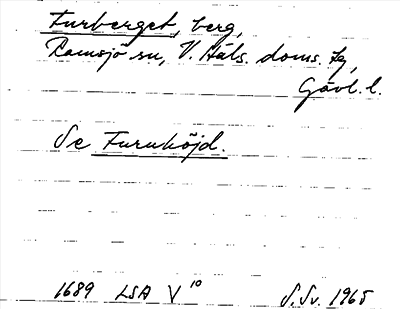 Furberget, berg,
Ramsjö sn, V. Häls. doms. tg,
Gävl. l.
Se Furuhöjd.
1689 LSA V 10 S. Sv. 1965